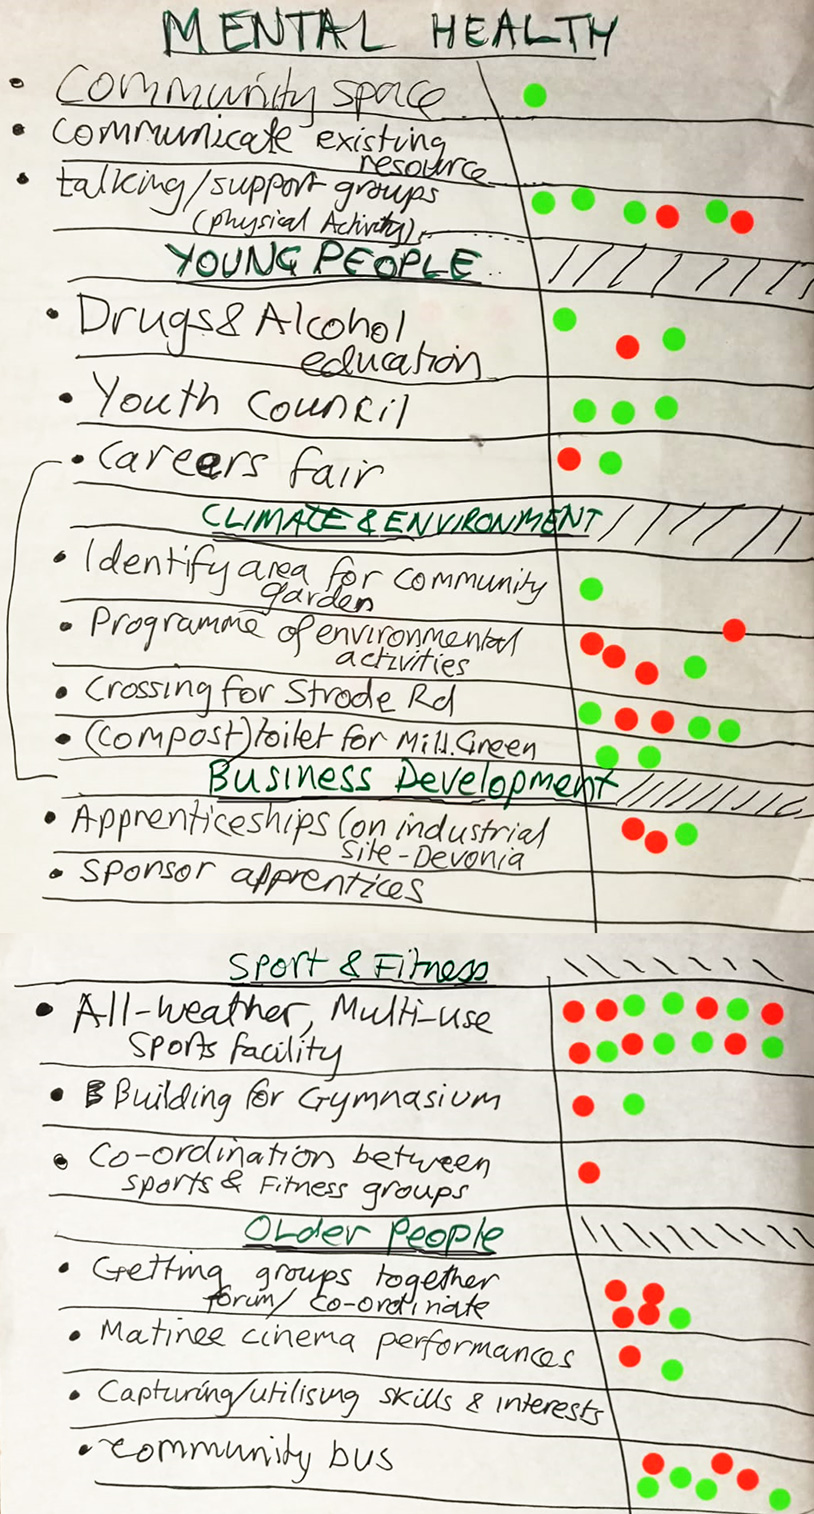 MENTAL HEALTH
• Community space
• Communicate existing
resource
• talking/support groups
(physical Activity)
YOUNG PEOPLE
• Drugs & Alcohol
education
• Youth Council
• Careers fair
CLIMATE & ENVIRONMENT
• Identify area for community
garden
• Programme of environmental
activities
• Crossing for Strode Rd
• (compost) toilet for Mill.Green
Business Development
• Apprenticeships (on industrial
site-Devonia
• Sponsor apprentices
Sport & Fitness
• All-weather, Multi-use
Sports facility
• Building for Gymnasium
• Co-ordination between
sports & Fitness groups
Older People
• Getting groups together
forum/ co-ordinate
• Matinee cinema performances
• Capturing/utilising skills & interests
• Community bus